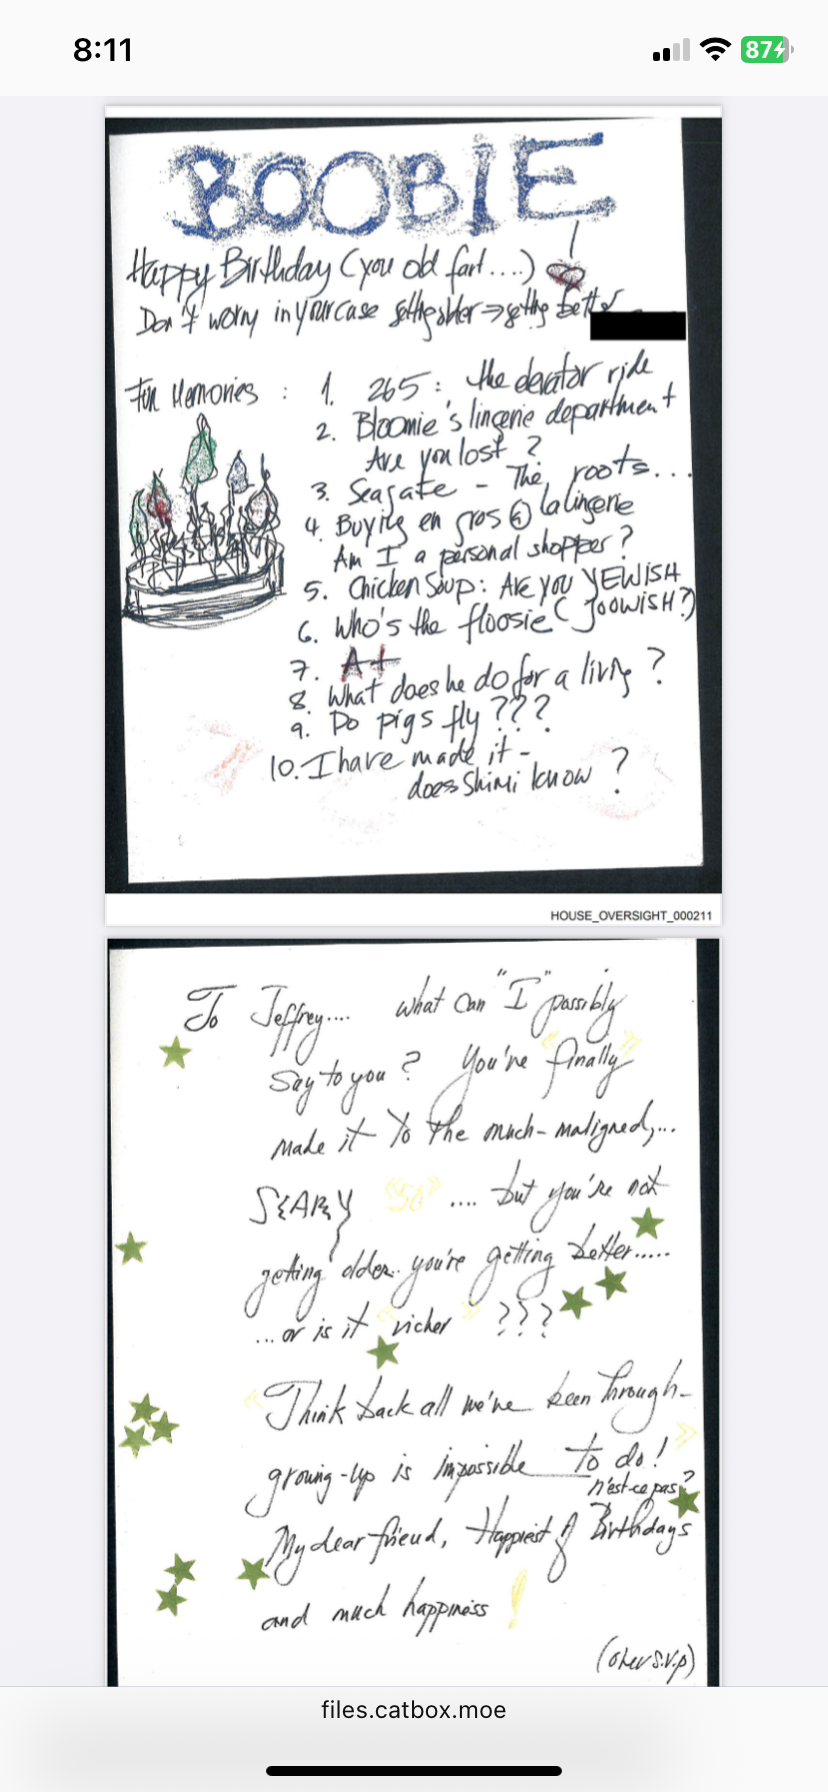 8:11
87
BOOBIE
Happy Birthday (you old fart....)
Don't worry in your case getting older → getting better
Fun Memories : 1. 265: the elevator ride
2. Bloomie's lingerie department
Are you lost ?
3. Seagate - The roots...
4. Buying en gros @ la lingerie
Am I a personal shopper ?
5. Chicken Soup: Are you YEWISH
( JOOWISH?)
6. Who's the floosie
7. A+
8. What does he do for a living ?
9. Do pigs fly ???
10. I have made it -
does Shimi know ?
HOUSE_OVERSIGHT_000211
To Jeffrey.... what can "I" possibly
say to you ? You've "finally"
made it to the much-maligned,...
SCARY "50" .... but you're not
getting older.. you're getting better.....
... or is it "richer" ???
"Think back all we've been through -
growing-up is impossible to do! "
n'est-ce pas?
My dear friend, Happiest of Birthdays
and much happiness !
(over s.v.p)
files.catbox.moe